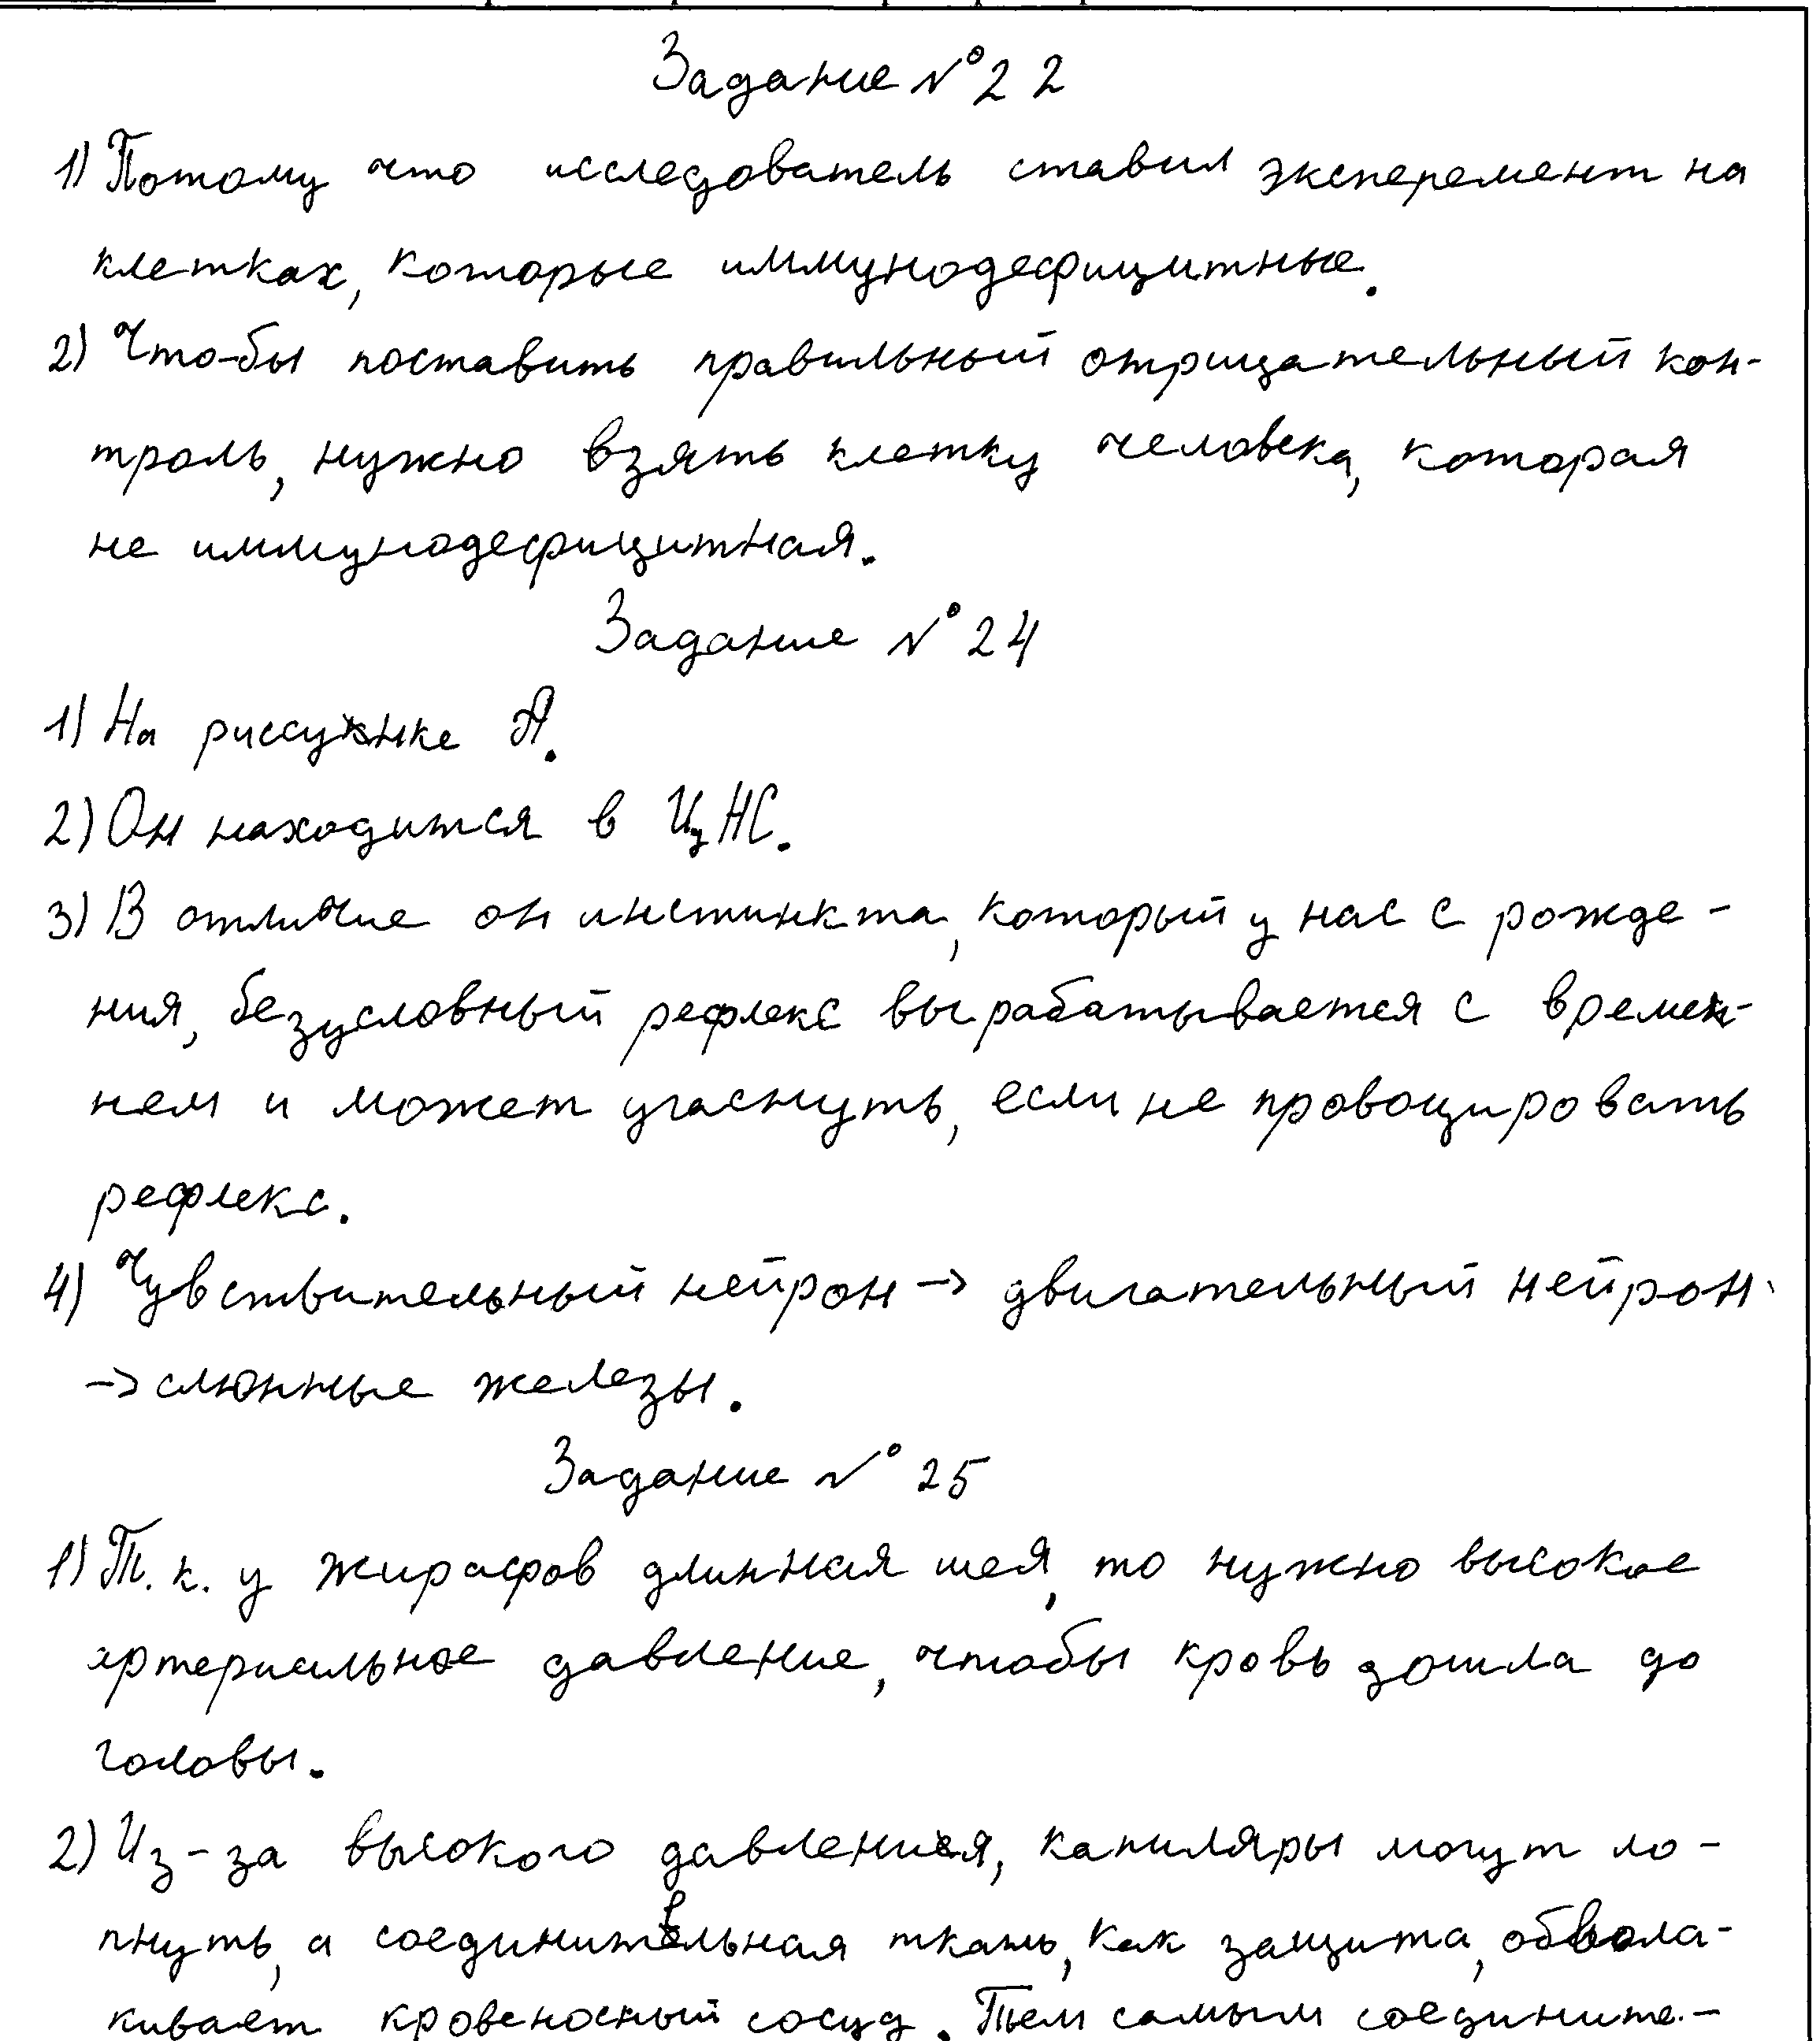 Задание №22
1) Потому что исследователь ставил эксперемент на
клетках, которые иммунодефицитные.
2) Что-бы поставить правильный отрицательный кон-
троль, нужно взять клетку человека, которая
не иммунодефицитная.
Задание №24
1) На риссунке А.
2) Он находится в ЦНС.
3) В отличие он инстинкта, который у нас с рожде-
ния, безусловный рефлекс вырабатывается с времен-
нем и может угаснуть, если не провоцировать
рефлекс.
4) Чувствительный нейрон → двигательный нейрон
→ слюнные железы.
Задание №25
1) Т. к. у жирафов длинная шея, то нужно высокое
артериальное давление, чтобы кровь дошла до
головы.
2) Из-за высокого давления, капиляры могут ло-
пнуть, а соединительная ткань, как защита, обвола-
кивает кровеносный сосуд. Тем самым соедините-